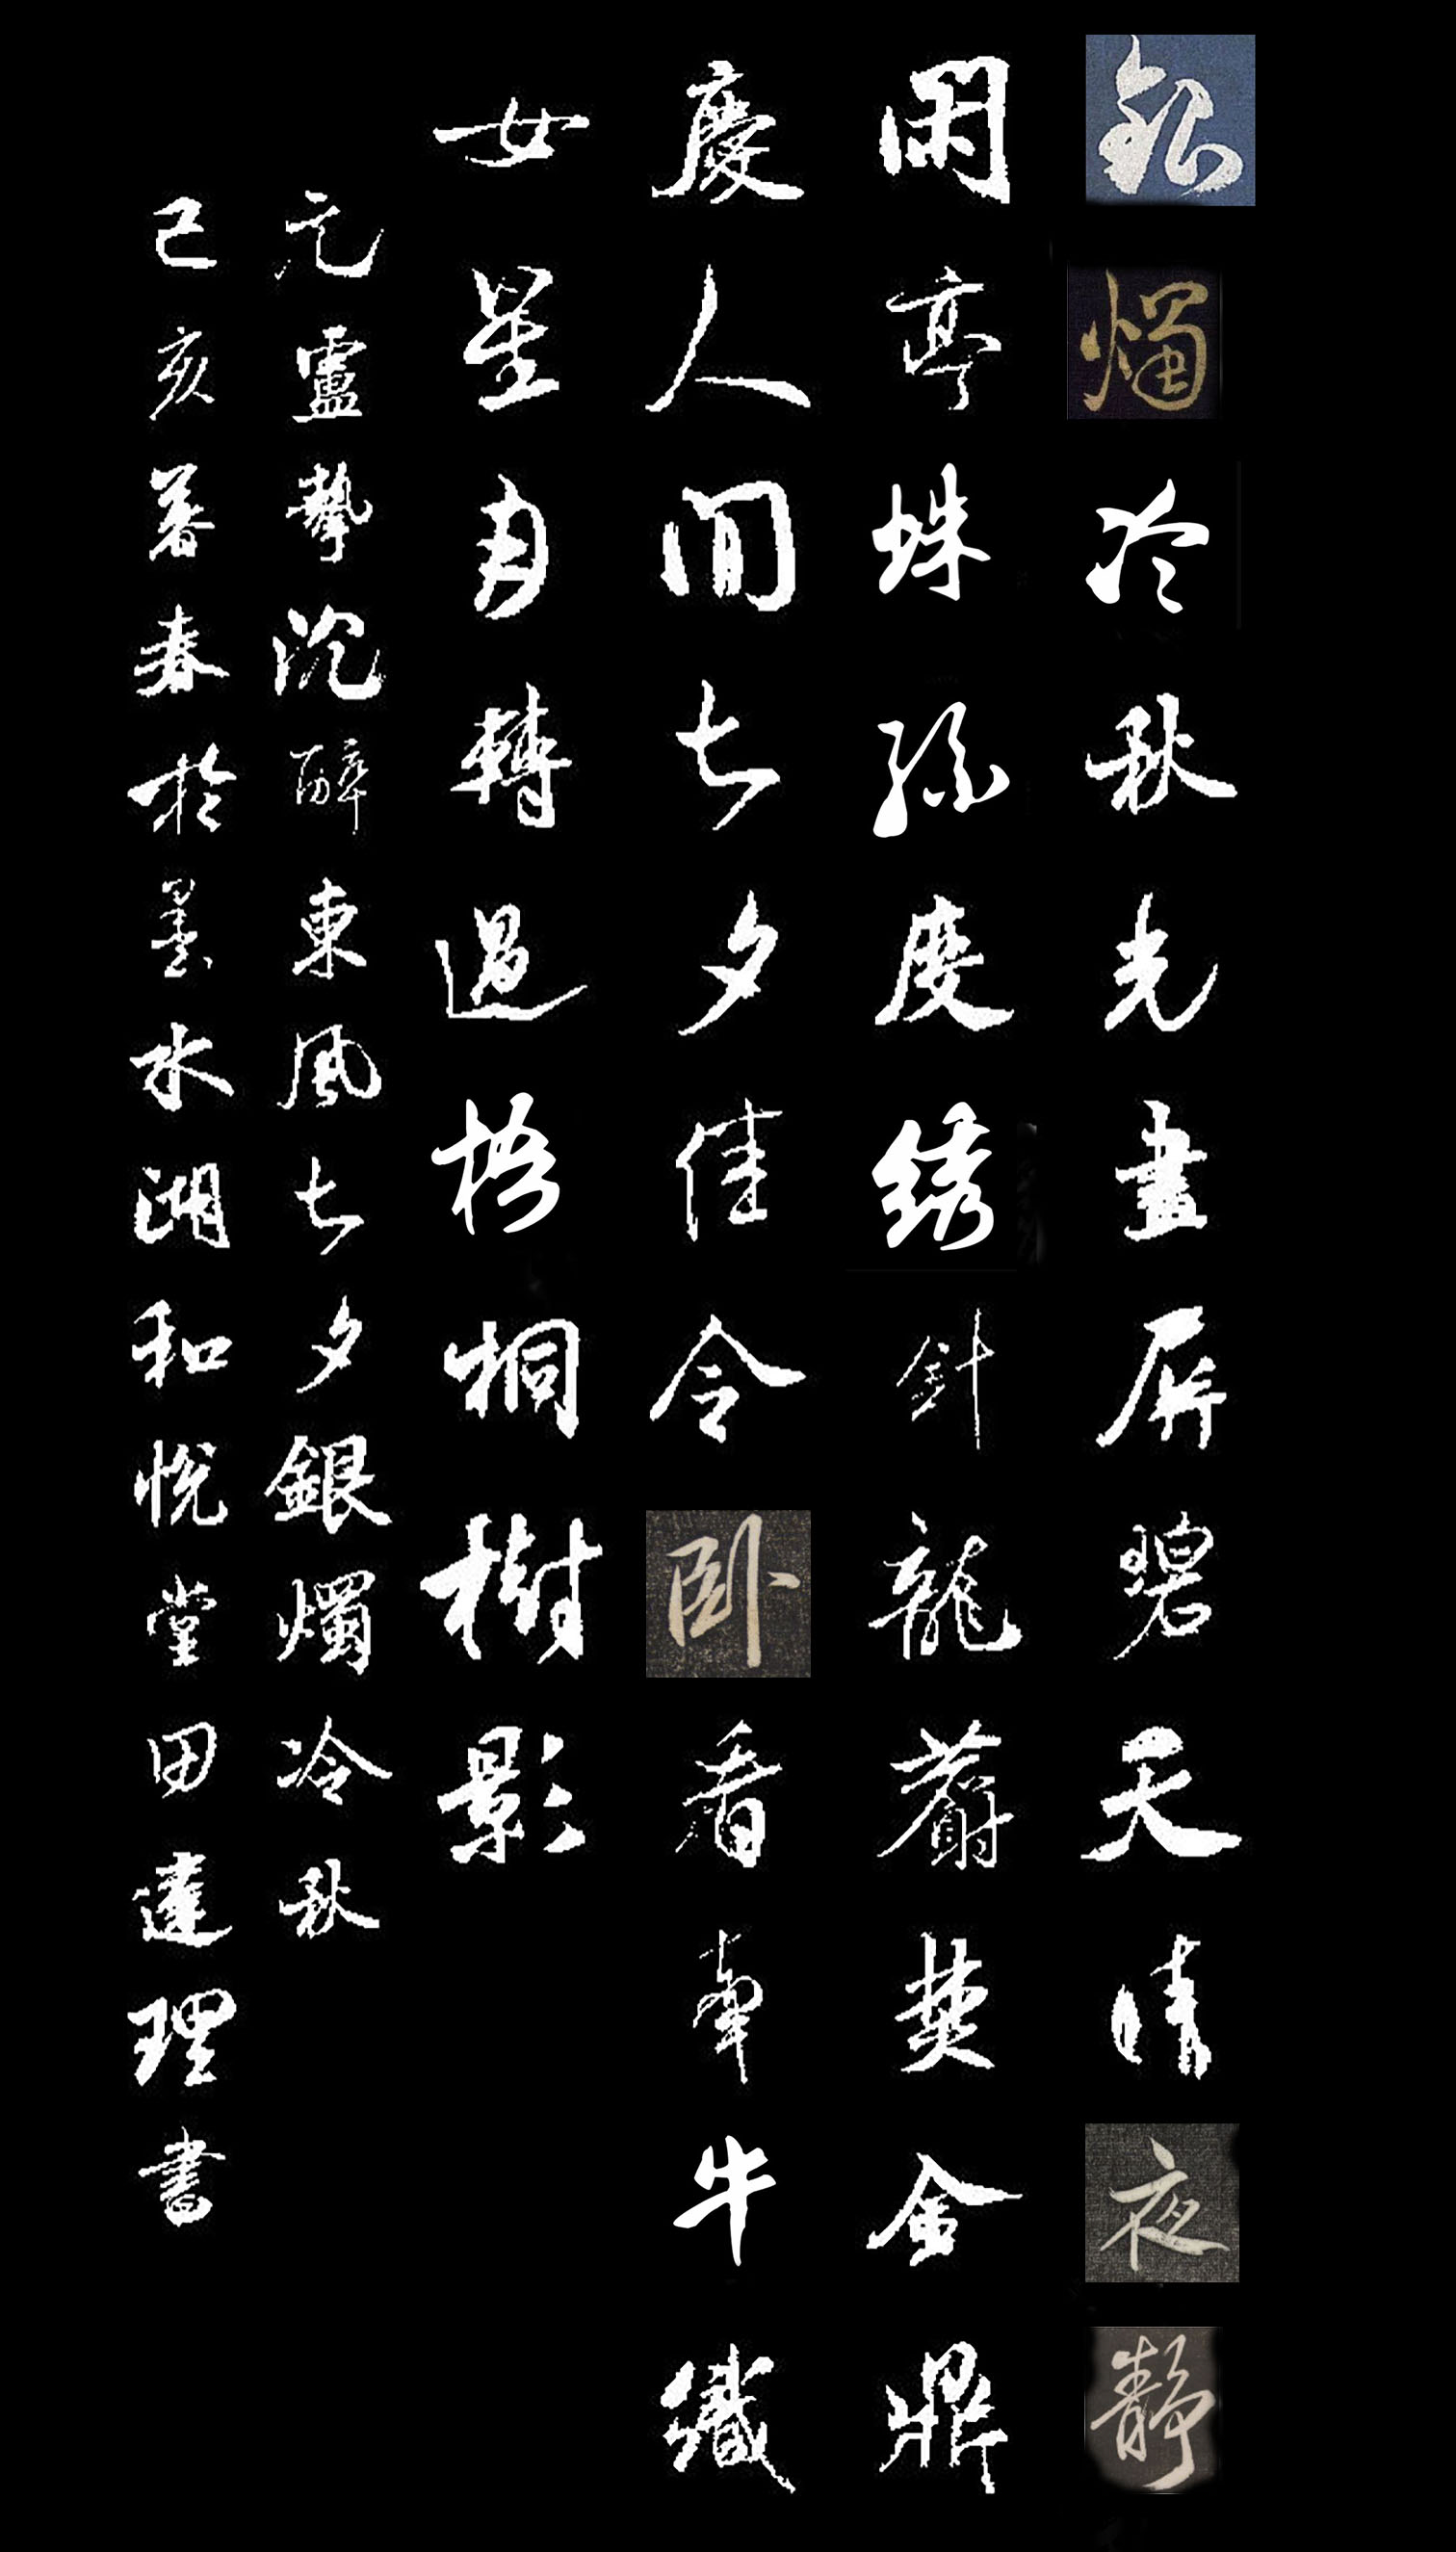 銀燭冷秋光畫屏碧天晴夜靜
閑亭蛛絲度綉針龍麝焚金鼎
慶人間七夕佳令卧看牽牛織
女星月轉過梧桐樹影
元盧摯沉醉東風七夕銀燭冷秋
己亥暮春於墨水湖和悅堂田達理書